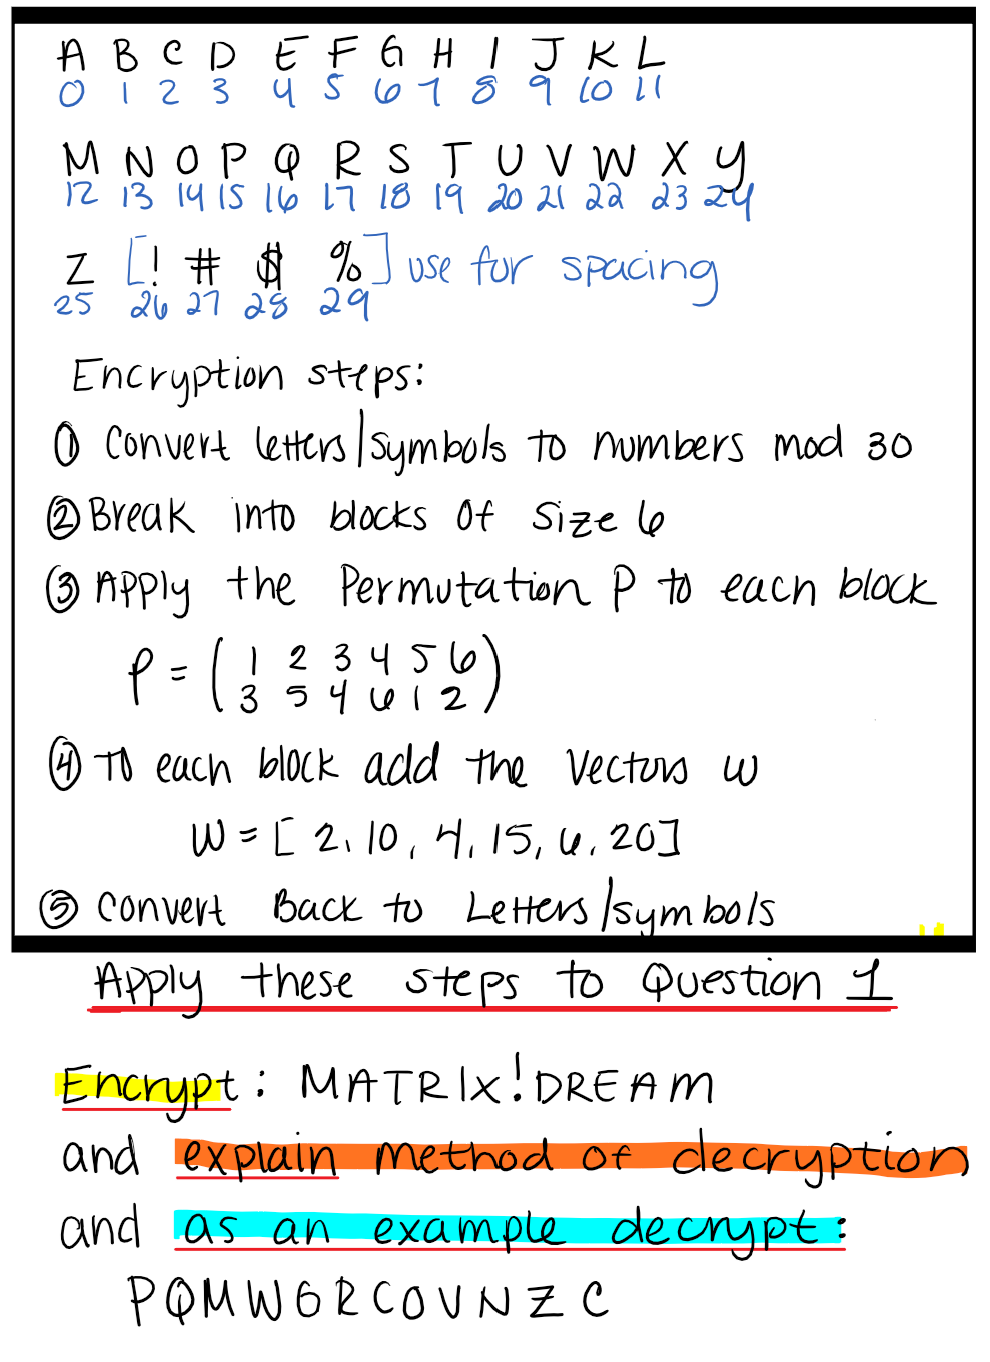 A B C D E F G H I J K L
0 1 2 3 4 5 6 7 8 9 10 11
M N O P Q R S T U V W X Y
12 13 14 15 16 17 18 19 20 21 22 23 24
Z [! # $ %] use for spacing
25 26 27 28 29
Encryption steps:
① Convert letters/symbols to numbers mod 30
② Break into blocks of size 6
③ Apply the Permutation P to each block
P = ( 1 2 3 4 5 6 )
3 5 4 6 1 2
④ To each block add the vectors w
W = [ 2, 10, 4, 15, 6, 20]
⑤ Convert Back to Letters/symbols
Apply these steps to Question 1
Encrypt: MATRIX!DREAM
and explain method of decryption
and as an example decrypt:
PQMWGRCOVNZC